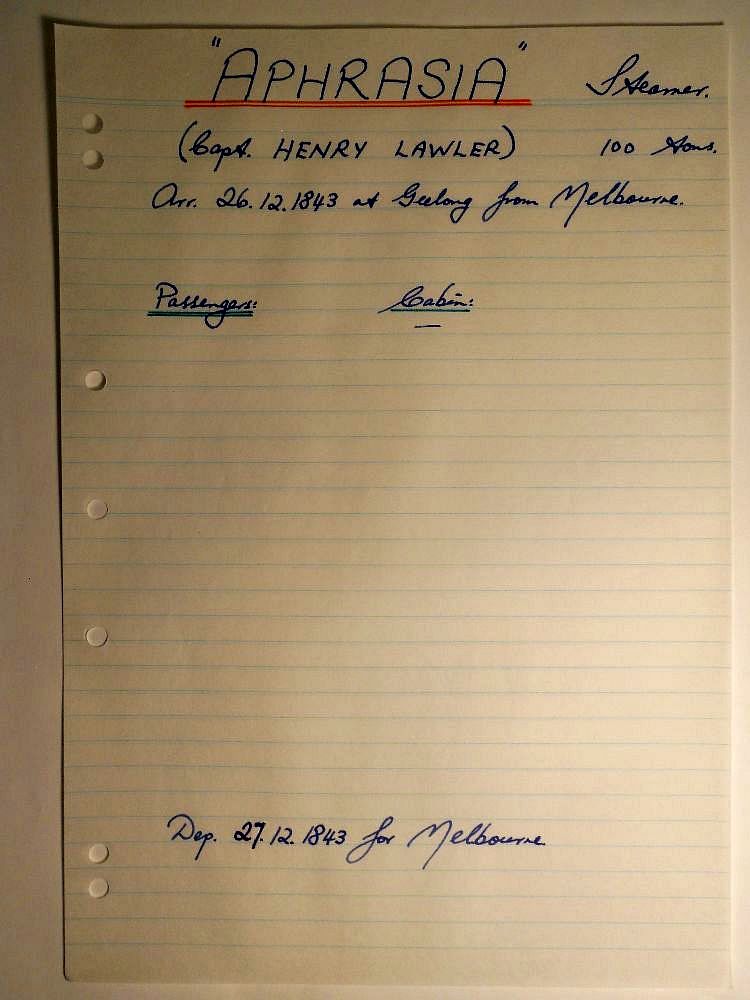 "APHRASIA" Steamer.
(Capt. HENRY LAWLER) 100 tons.
Arr. 26.12.1843 at Geelong from Melbourne.
Passengers: Cabin:
—
Dep. 27.12.1843 for Melbourne